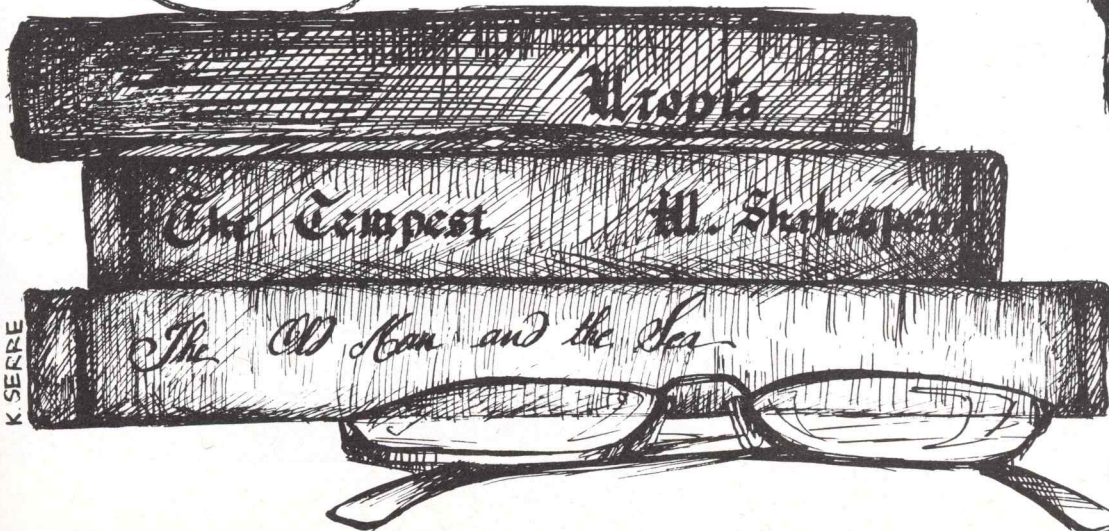 Utopia
The Tempest W. Shakespere
The Old Man and the Sea
K. SERRE